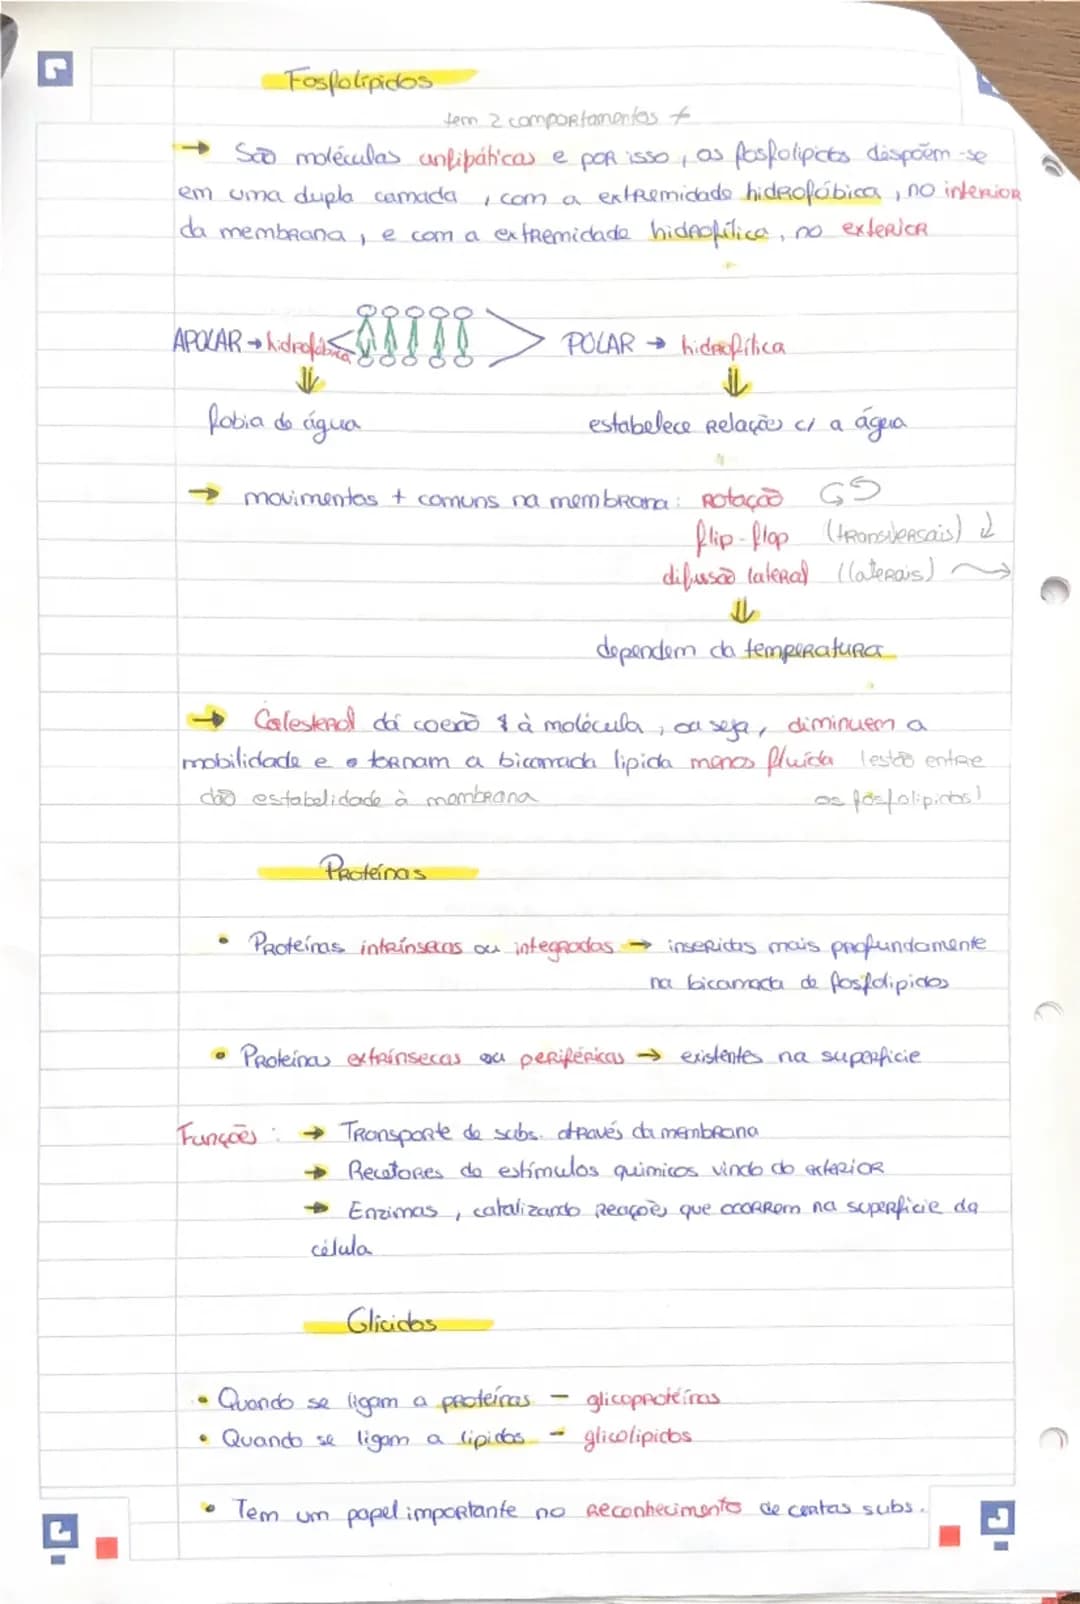 Fosfolípidos
tem 2 comportamentos
→ São moléculas anfipáticas e por isso, os fosfolipidos dispõem-se
em uma dupla camada, com a extremidade hidrofóbica, no interior
da membrana, e com a extremidade hidrofílica, no exterior
APOLAR → hidrofóbica
POLAR → hidrofílica
fobia de água
estabelece relação c/ a água
→ movimentos + comuns na membrana: rotação
flip-flop (transversais) ↓
difusão lateral (laterais) →
dependem da temperatura
→ Colesterol dá coesão à molécula, ou seja, diminuem a
mobilidade e tornam a bicamada lipida menos fluída (estão entre
dão estabelidade à membrana os fosfolipidos!
Proteínas
• Proteínas intrínsecas ou integradas → inseridas mais profundamente
na bicamada de fosfolipidos
• Proteínas extrínsecas ou periféricas → existentes na superficie
Funções: → Transporte de subs. através da membrana
→ Recetores de estímulos quimicos vindo do exterior
→ Enzimas, catalizando reações que ocorrem na superficie da
célula
Glícidos
• Quando se ligam a proteínas - glicoproteínas
• Quando se ligam a lipidos - glicolipidos
• Tem um papel importante no reconhecimento de certas subs.